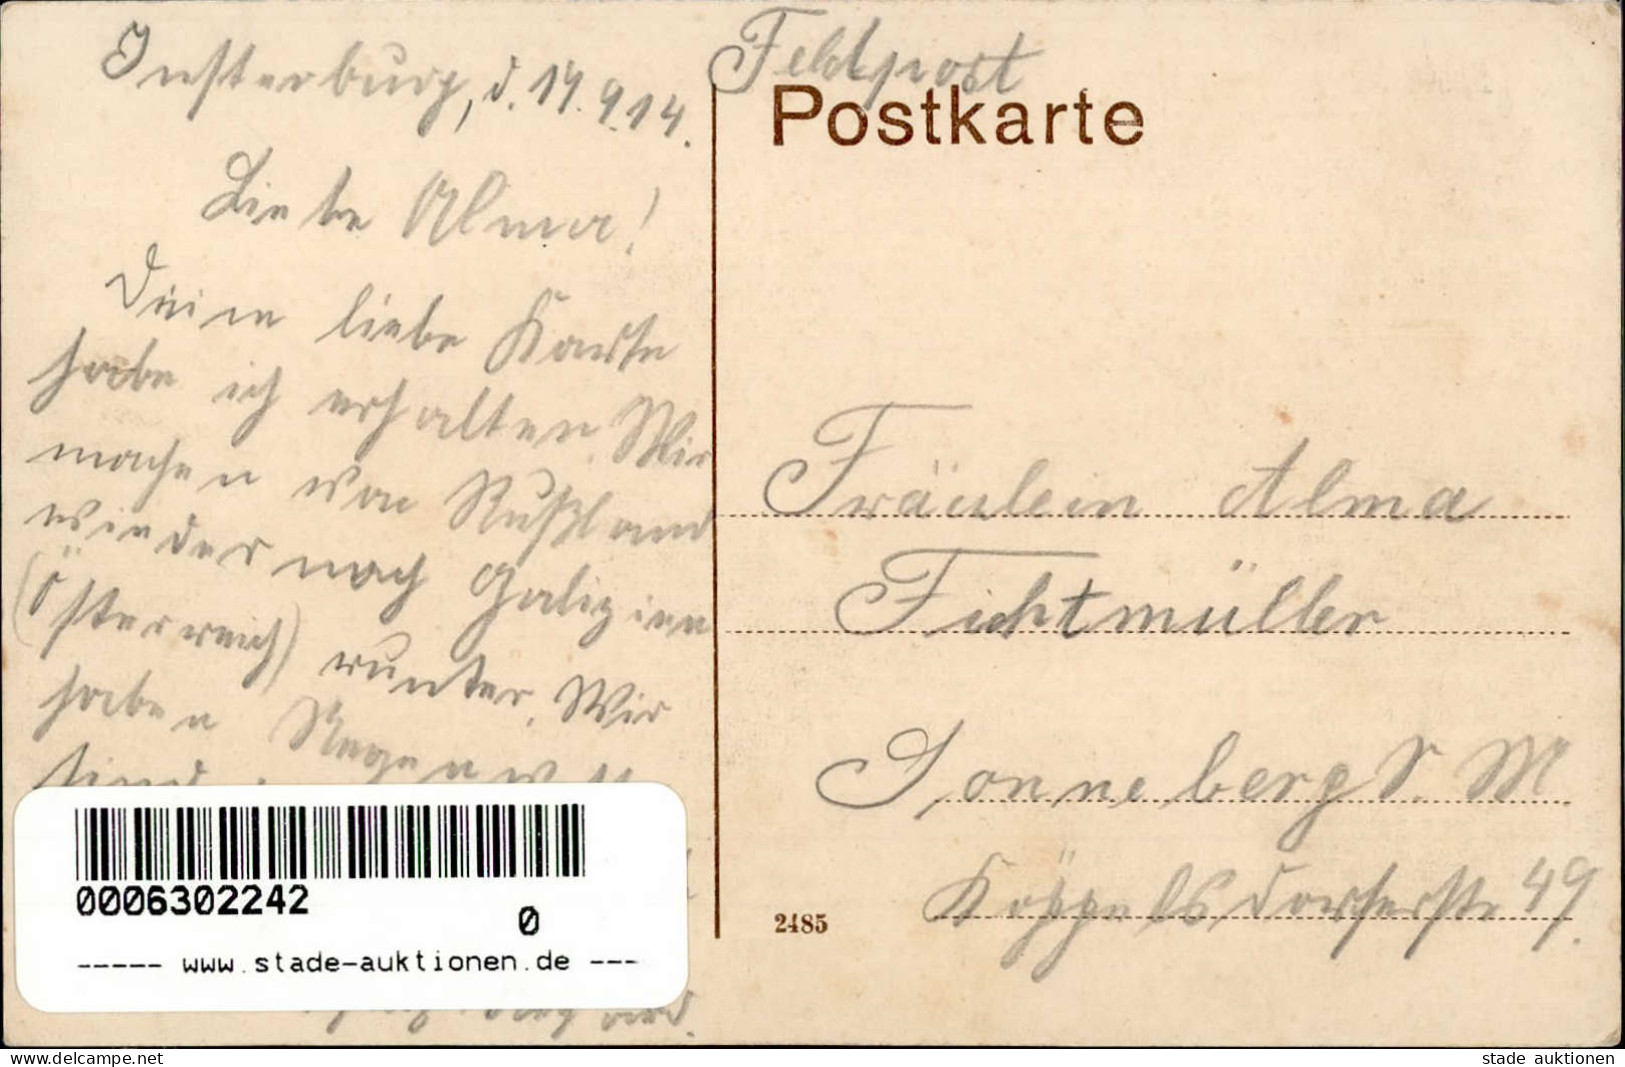 Insterburg, d. 14.9.14.
Liebe Alma!
Deine liebe Karte
habe ich erhalten. Wir
machen von Rußland
wieder nach Galizien
(Österreich) runter. Wir
haben
sind
Feldpost
Postkarte
Fräulein Alma
Fichtmüller
Sonneberg S. M
Köppelsdorferstr 49.
2485
0006302242
0
----- www.stade-auktionen.de ---
delcampe.net
stade auktionen